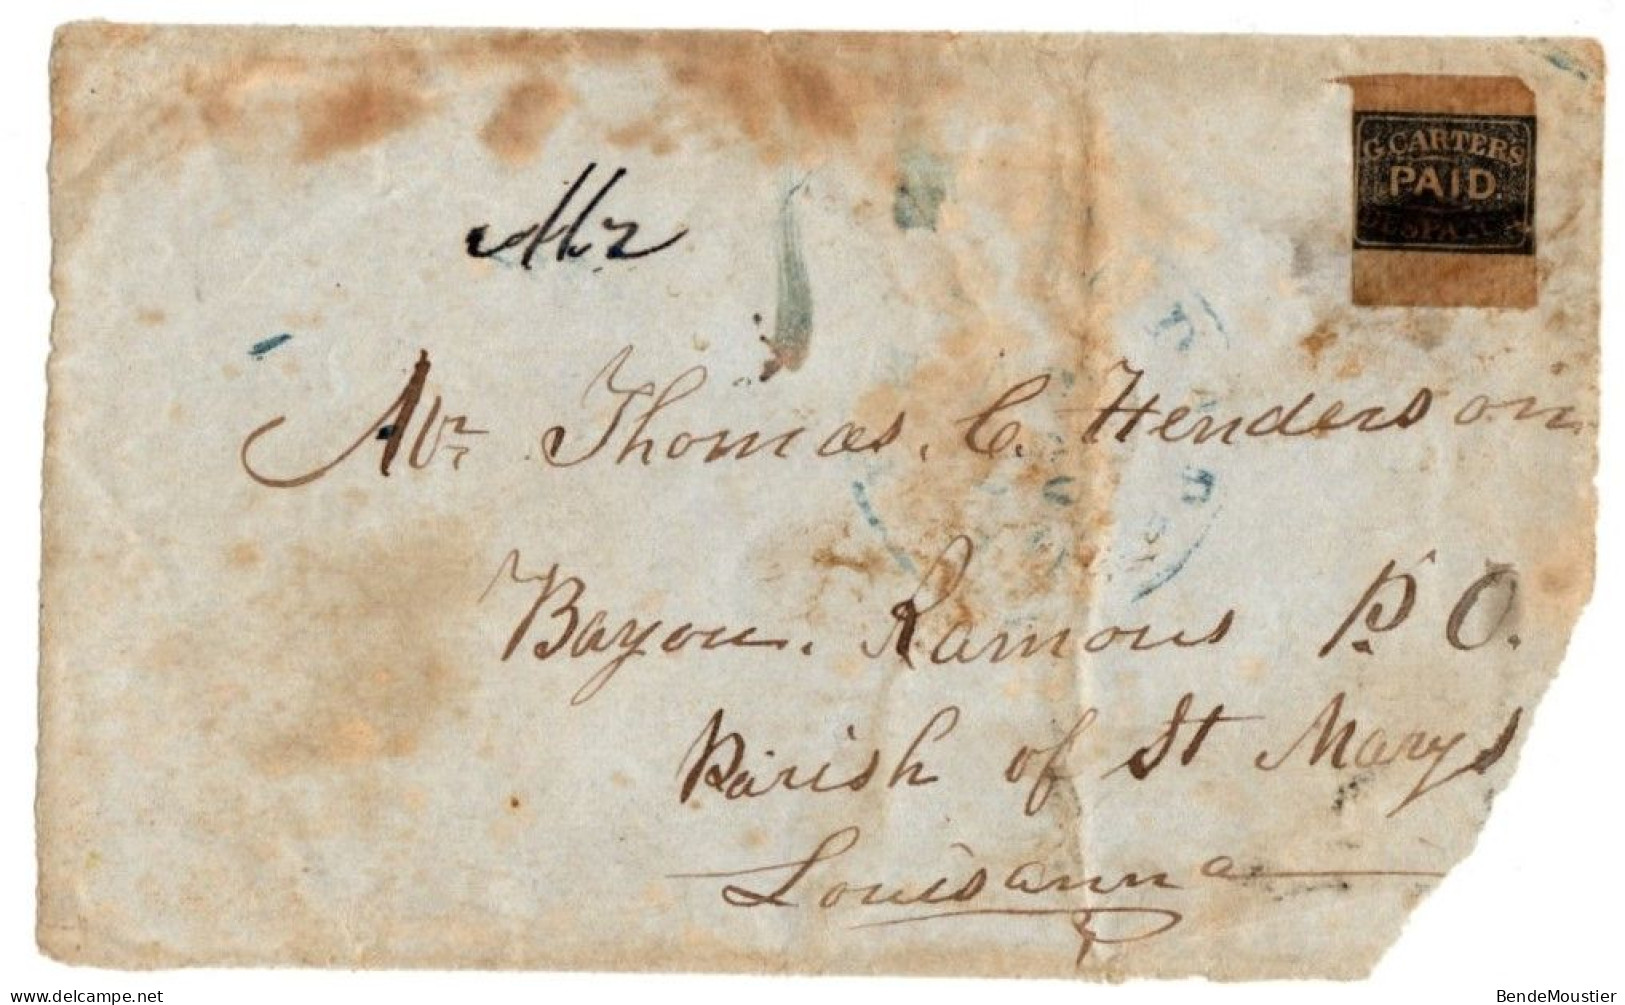 G. CARTER'S
PAID.
DESPATCH
Mr
Mr Thomas. C. Henderson
Bayou. Ramous P. O.
Parish of St Marys
Louisanna
BendeMoustier